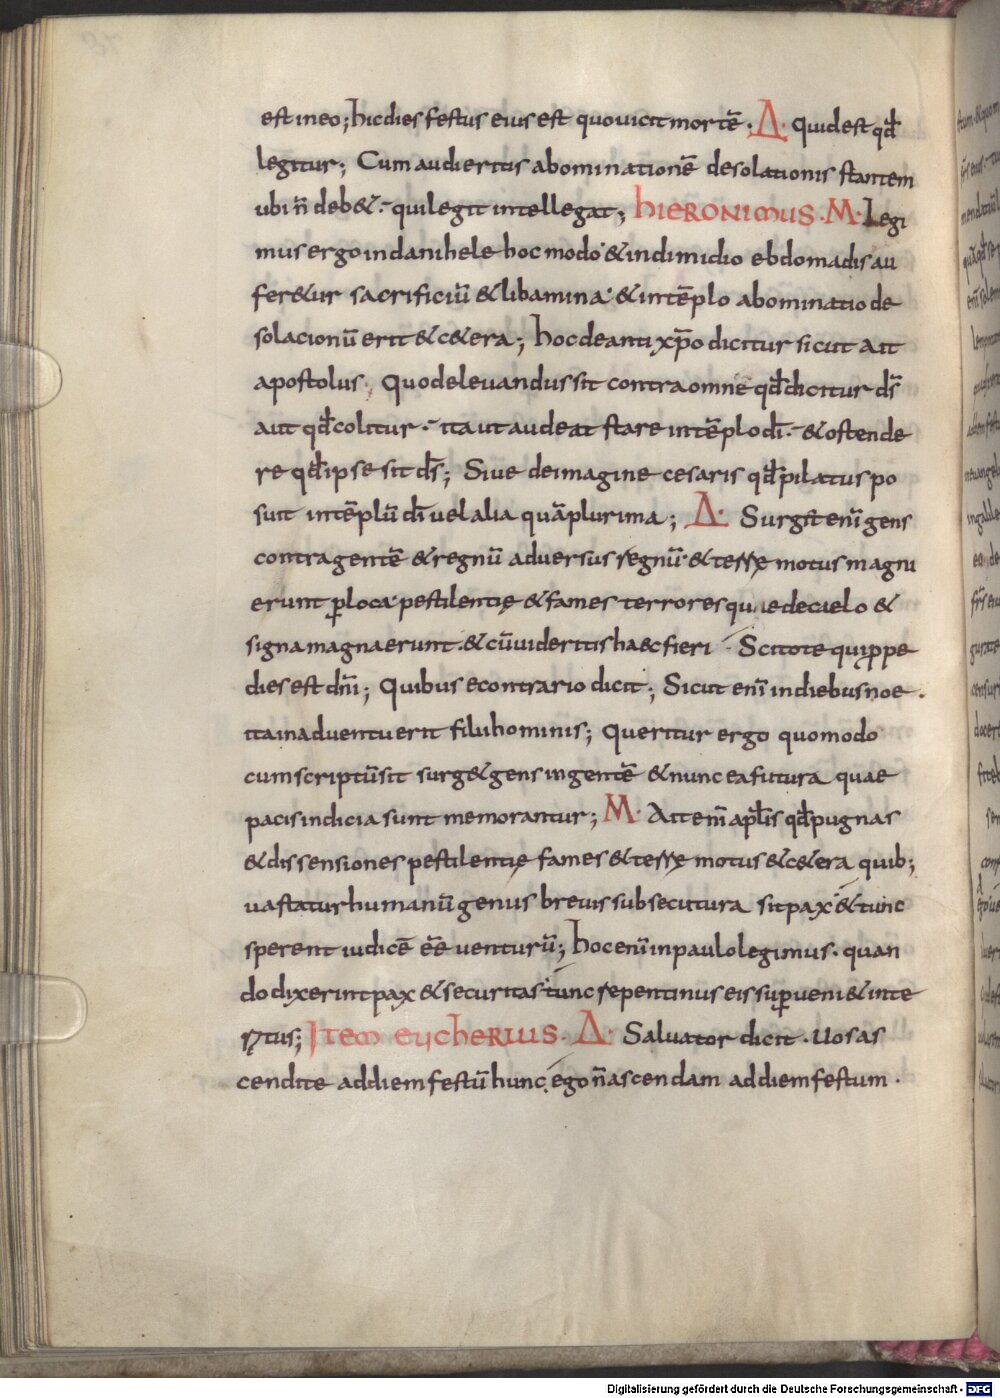 est in eo; hic dies festus eius est quo vicit mortē · Δ · Quid est qđ
legitur; Cum audieritis abominationē desolationis stantem
ubi ñ deb&· qui legit intellegat; hieronimus · M · Legi
mus ergo in danihele hoc modo & in dimidio ebdomadis au
fer&ur sacrificiū & libamina & in tēplo abominatio de
solacionū erit & c&era; hoc de anti xp̄o dicitur sicut ait
apostolus · Quod elevandus sit contra omne qđ dicitur ds̄
aut qđ colitur · ita ut audeat stare in tēplo dī · & ostende
re qđ ipse sit ds̄; Sive de imagine cesaris qđ pilatus po
suit in tēplū dī vel alia quā plurima; Δ · Surg& enī gens
contra gentē & regnū adversus regnū & terre motus magni
erunt p̱ loca pestilentię & fames terrores quae de caelo &
signa magna erunt · & cū videritis haec fieri · Scitote quippe
dies est dn̄i; Quibus econtrario dicit; Sicut enī in diebus noe ·
ita in adventu erit filii hominis; Queritur ergo quomodo
cum scriptū sit surg& gens in gentē & nunc ea futura quae
pacis indicia sunt memorantur; M · Ait em̄ apl̄s qđ pugnas
& dissensiones pestilentię fames & terre motus & c&era quib;
vastatur humanū genus brevis subsecutura sit pax & tunc
sperent iudicē eē venturū; hoc enī in paulo legimus · quan
do dixerint pax & securitas tunc repentinus eis sup̱veni& inte
ritus; Item eucherius · Δ · Salvator dicit · Vos as
cendite ad diem festū hunc, ego ñ ascendam ad diem festum ·
Digitalisierung gefördert durch die Deutsche Forschungsgemeinschaft - DFG